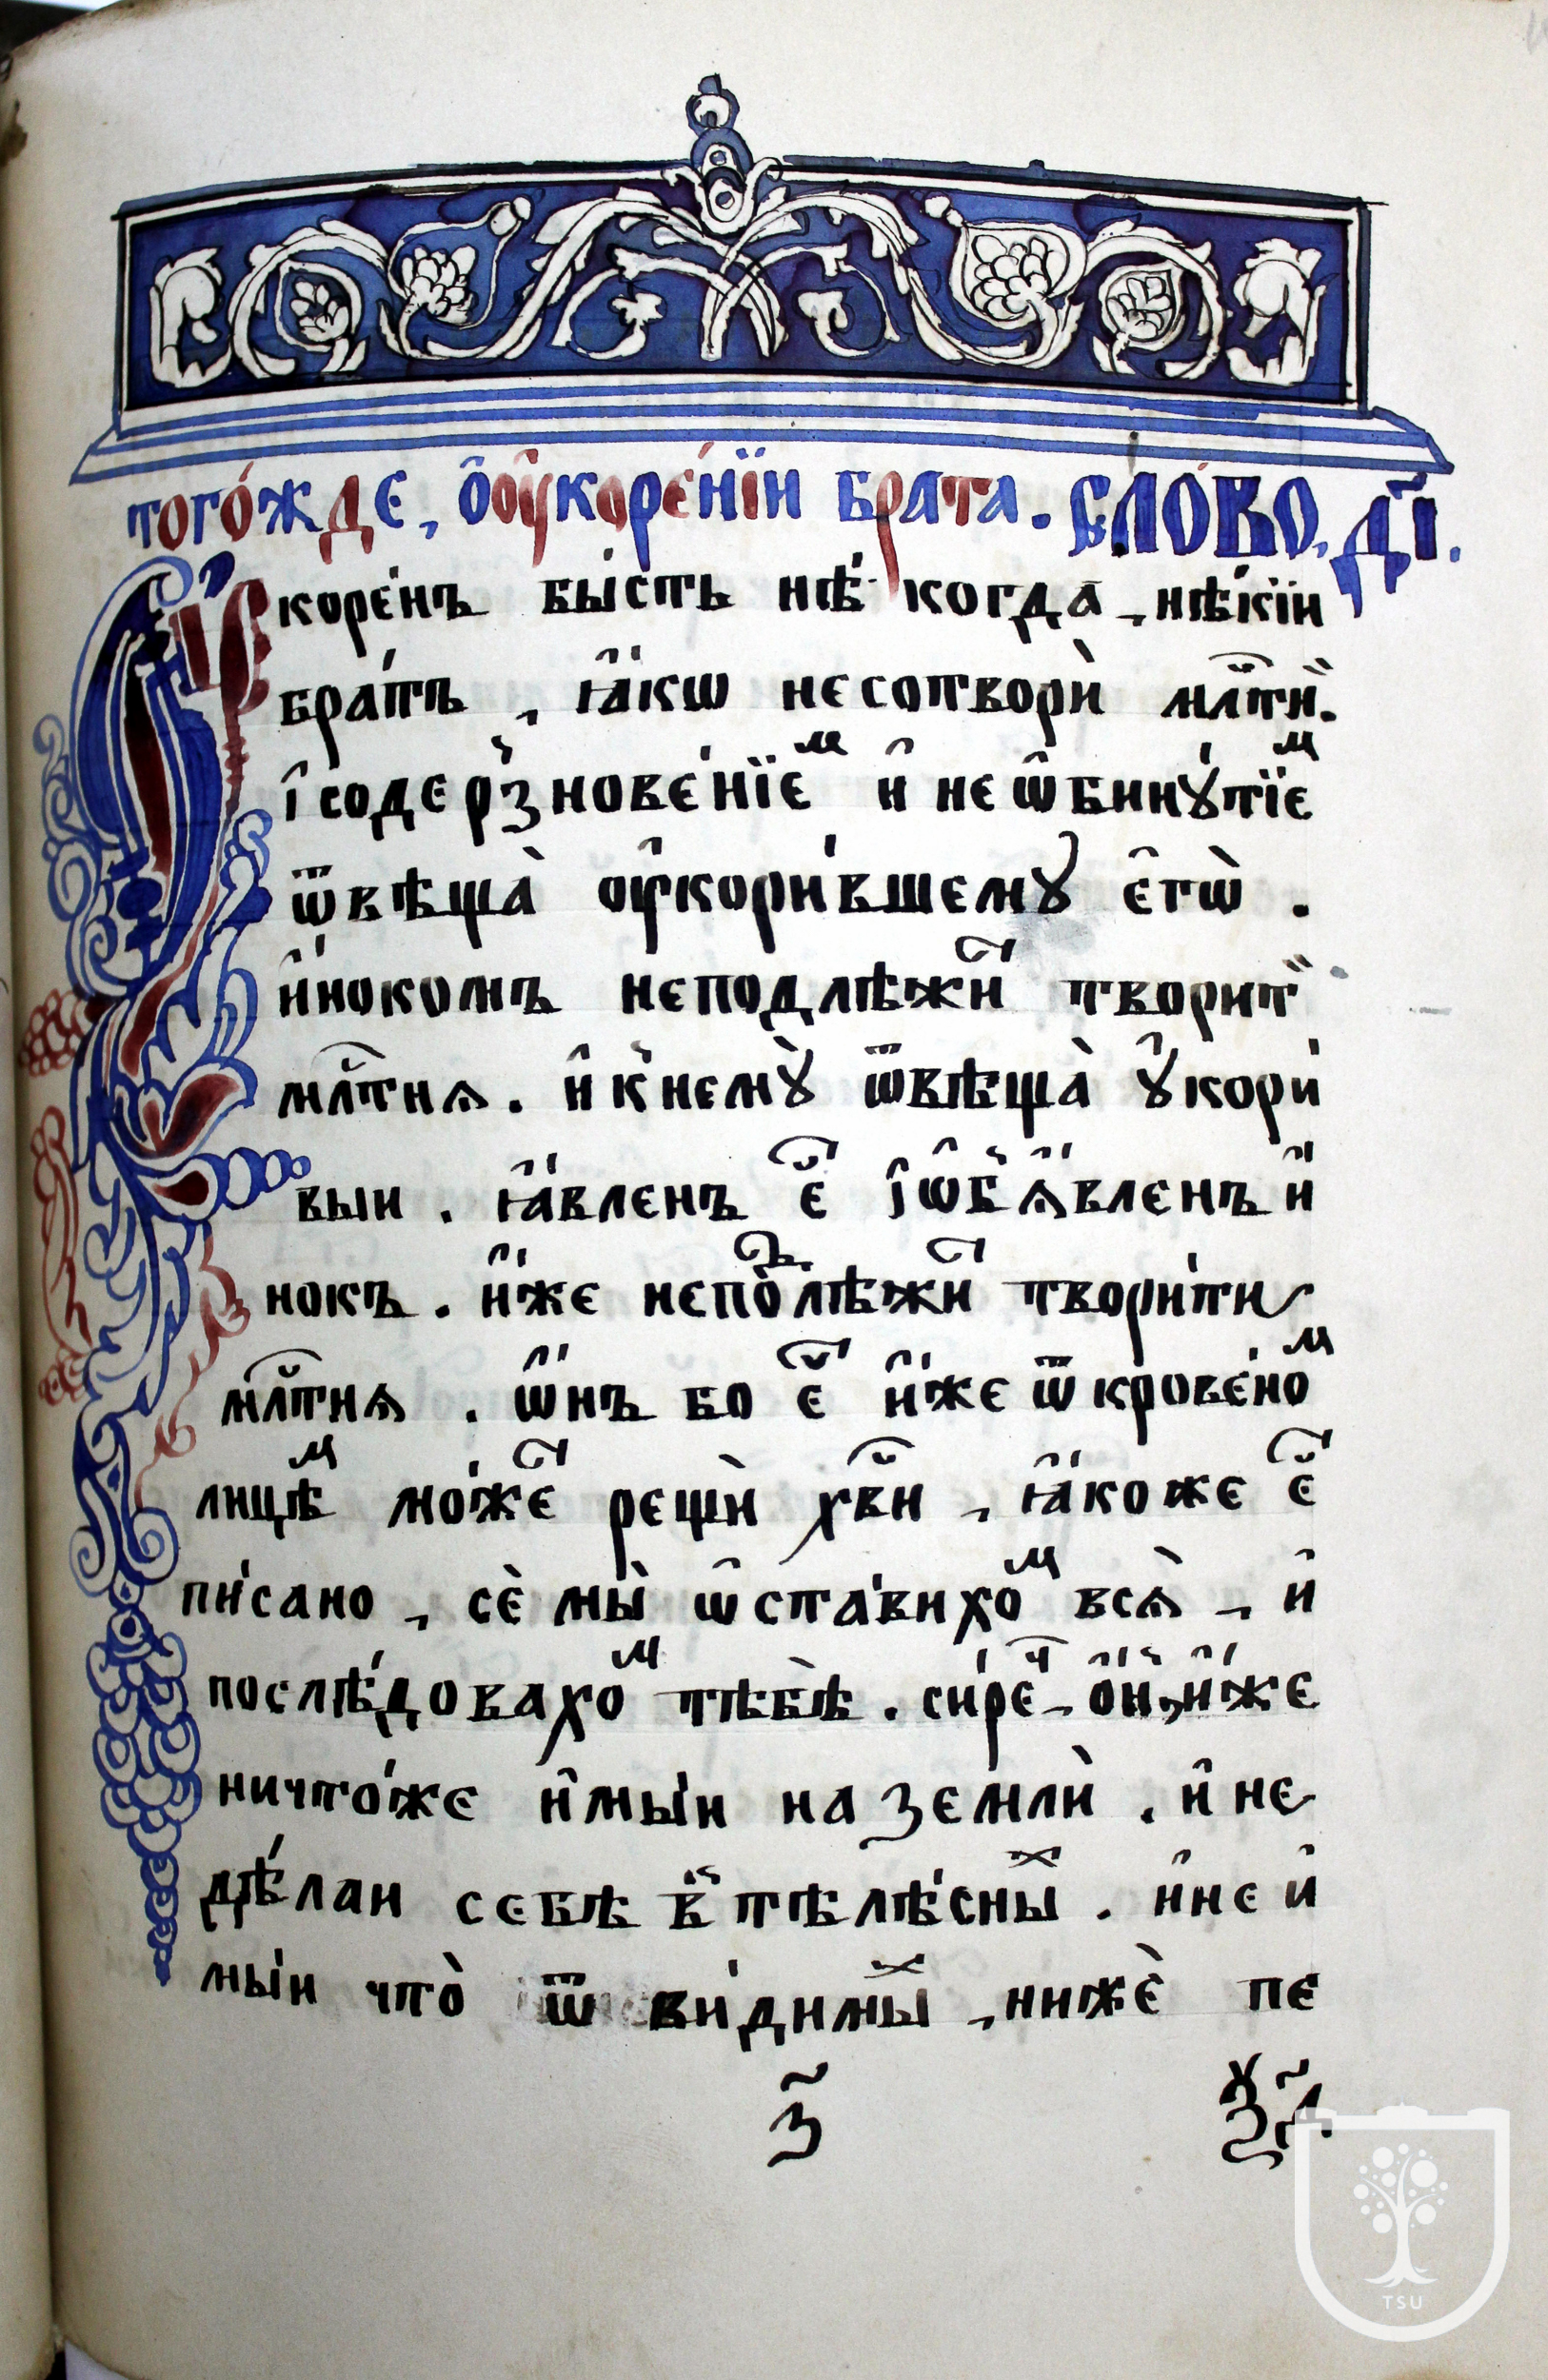 тогѡ́жде, ѻ҆ оу҆коре́нїи брата. сло́во, д҃і.
Оу҆коре́нъ бы́сть нѣ́когда, нѣ́кїи
бра́тъ, ꙗ҆́кѡ несотворѝ мл҃тнѝ.
і҆ содерзнове́нїеⷨ и҆ неѡ҆бинꙋ́тїеⷨ
ѿвѣща̀ оу҆кори́вшемꙋ є҆гѡ̀.
и҆́нокомъ неподлѣжиⷮ творит̾
мл҃тнѧ. и҆ к̾немꙋ̀ ѿвѣща̀ ꙋ҆кори́
выи. ꙗ҆́вленъ є҆ⷭ҇ і҆ѡ҆б̾ѧ҆́вленъ и҆́
нокъ. и҆́же непоⷣлѣжиⷮ твори́ти
мл҃тнѧ. ѡ҆́нъ бо є҆ⷭ҇ и҆́же ѿкрове́ноⷨ
лицѣⷨ мо́жеⷮ рещѝ хв҃и, ꙗ҆́коже є҆ⷭ҇
пи́сано, сѐ мы̀ ѡ҆ста́вихоⷨ всѧ̀, и҆
послѣ́довахоⷨ тѣбѣ̀. си́реⷱ, ѻ҆́н, и҆́же
ничто́же и҆мы́и на землѝ. и҆ не
дѣ́лаи себѣ в̾ тѣлѣ́сныⷯ. и҆ не и҆
мы́и что̀ ѿ ви́димыⷯ, нижѐ пе
з҃
TSU